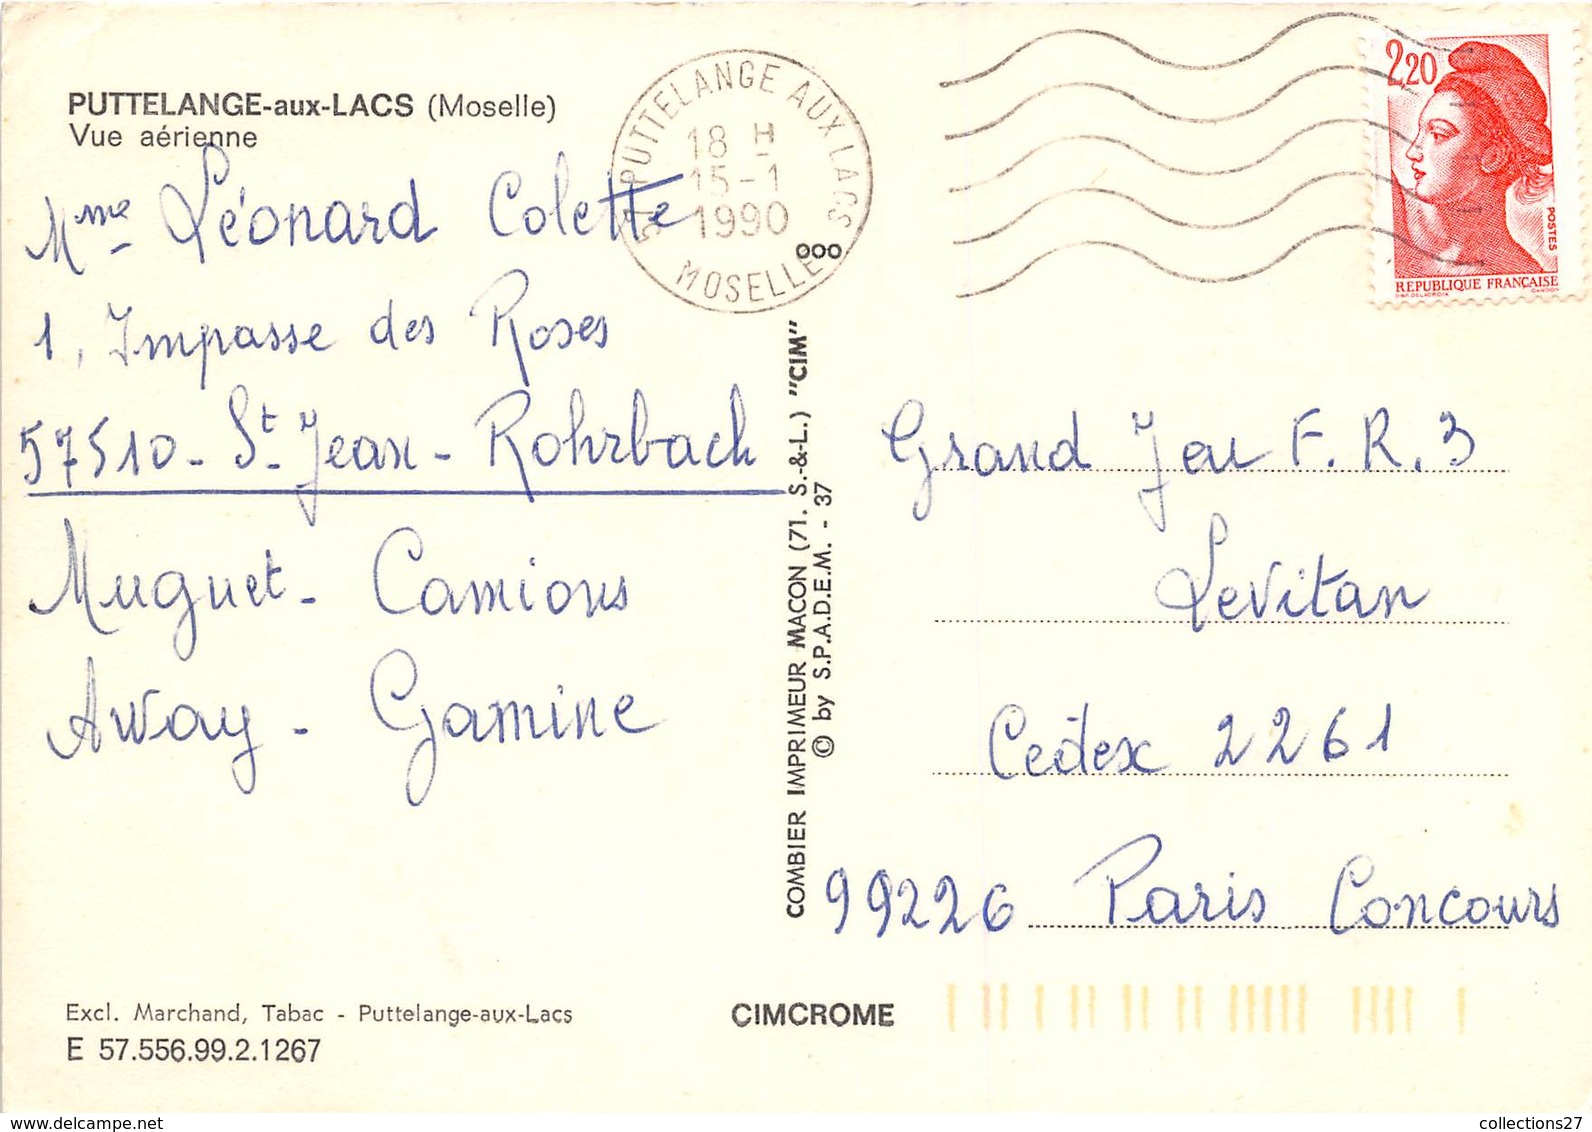 PUTTELANGE-aux-LACS (Moselle)
Vue aérienne
Mme Léonard Colette
1, Impasse des Roses
57510 - St-Jean-Rohrbach
Muguet - Camions
Away - Gamine
Excl. Marchand, Tabac - Puttelange-aux-Lacs
E 57.556.99.2.1267
57 PUTTELANGE AUX LACS
18 H
15-1
1990
MOSELLE
000
COMBIER IMPRIMEUR MACON (71. S.-&-L.) "CIM"
© by S.P.A.D.E.M. - 37
CIMCROME
2,20
POSTES
REPUBLIQUE FRANÇAISE
Grand Jeu F.R.3
Levitan
Cedex 2261
99226 Paris Concours
www.delcampe.net
collections27